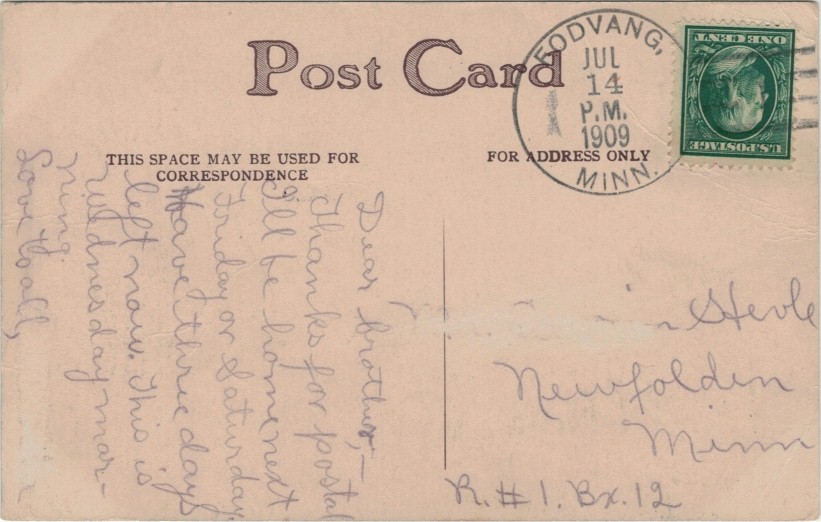 Post Card
FODVANG,
JUL
14
P.M.
1909
MINN.
U.S. POSTAGE
ONE CENT
THIS SPACE MAY BE USED FOR
CORRESPONDENCE
FOR ADDRESS ONLY
Dear brother,—
Thanks for postal
I'll be home next
Friday or Saturday.
Have three days
left now. This is
Wednesday mor-
ning.
Love to all,
Newfolden
Minn
R. # 1. Bx. 12